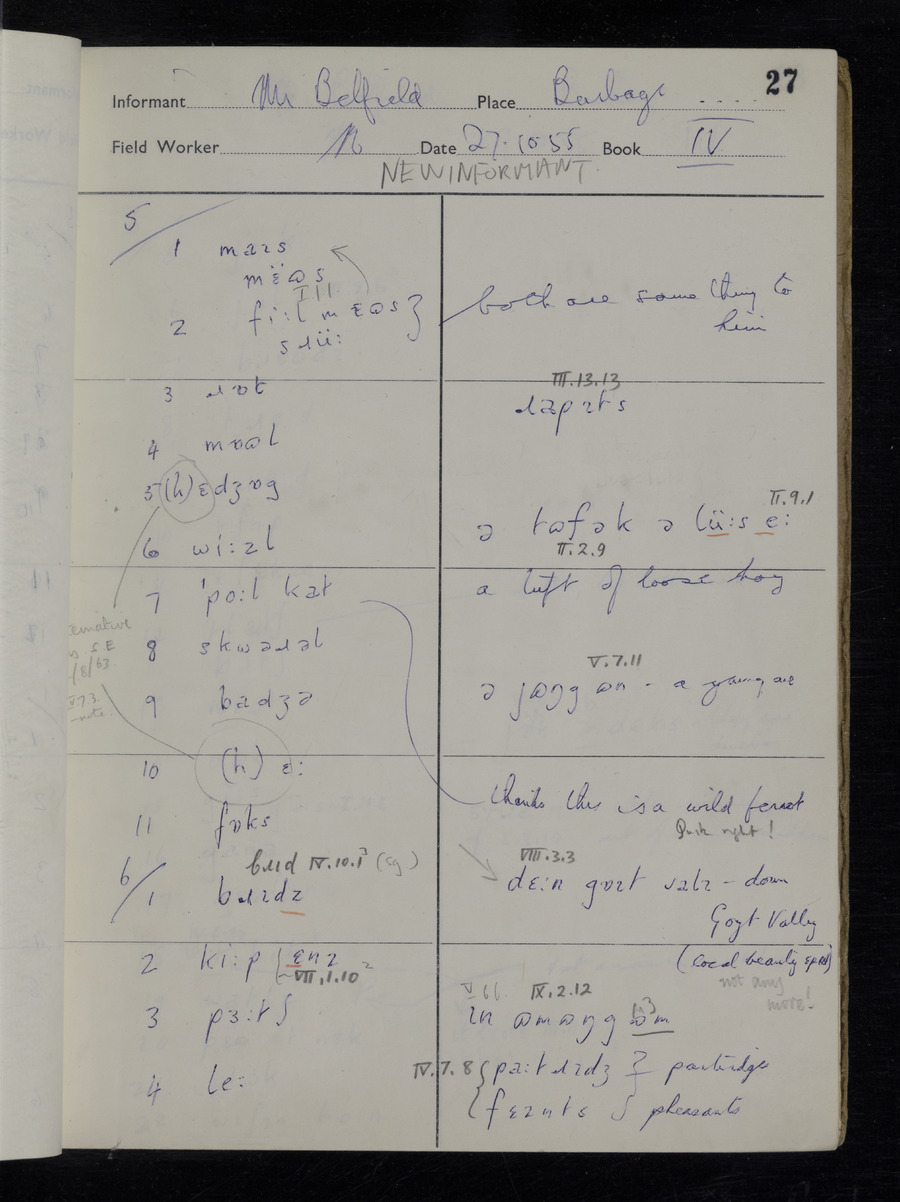 27
Informant Mr Belfield Place Burbage
Field Worker Date 27.10.55 Book IV
NEW INFORMANT
5
1 maɪs
mɛ̈ɷs
III
2 fiːl mɛɷs }
sɹüː
both are same thing to
him
3 ɹɒt
III.13.13
ɹapɪts
4 mɒɷl
5 (h)ɛdʒɒg
II.9.1
ə tɷfək ə lüːs ɛː
II.2.9
6 wiːzl
a tuft of loose hay
7 ˈpoːl kat
8 skwəɹəl
V.7.11
ə jɷŋg ɷn - a young one
9 badʒə
10 (h) ɛː
thinks this is a wild ferret
Quite right!
11 fɒks
6
bɹɪd IV.10.1³ (sg)
VIII.3.3
1 bɹɪdz
dɛːn gɒɪt valɪ - down
Goyt Valley
(local beauty spot)
not any
more!
2 kiːp ɛnz
VII.1.10²
V 66 IX.2.12
3 pɜːtʃ
ɪn ɷmɷŋg ɷm
4 lɛː
IV.7.8 { paːtɹɪdʒ } partridge
fɛznts pheasants